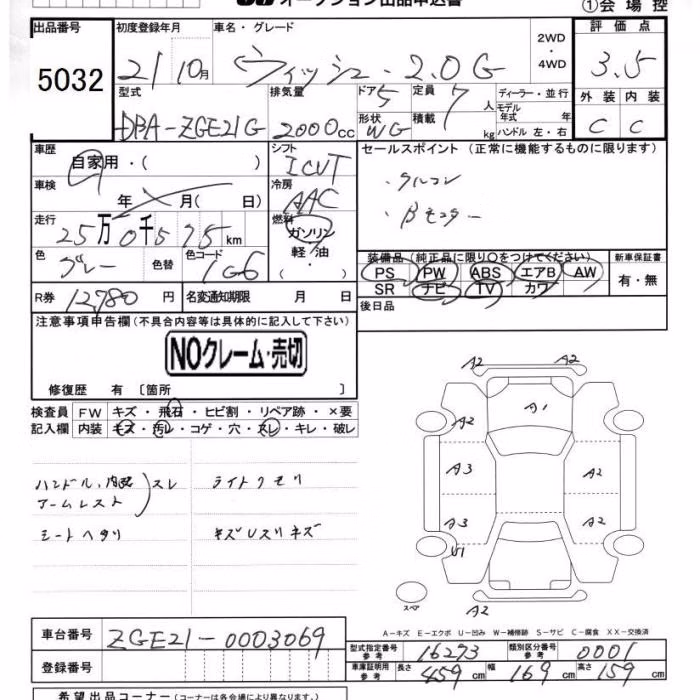 オークション出品申込書
①会場控
出品番号 5032
初度登録年月 21 10月
車名・グレード ウィッシュ・2.0G
2WD・4WD
評価点 3.5
型式 DBA-ZGE21G
排気量 2000cc
ドア 5
形状 WG
定員 7人
積載 kg
ディーラー・並行
モデル年式 年
ハンドル 左・右
外装 C 内装 C
車歴 自家用・( )
シフト ICVT
セールスポイント (正常に機能するものに限ります)
・タルコン
・Bモニター
車検 年 月( 日)
冷房 AAC
走行 25万0千575km
燃料 ガソリン 軽油・( )
色 グレー 色替 色コード 1G6
装備品 (純正品に限り〇をつけてください)
新車保証書 有・無
PS PW ABS エアB AW
SR ナビ TV カワ
R券 12,780円 名変通知期限 月 日
後日品
注意事項申告欄 (不具合内容等は具体的に記入して下さい)
NOクレーム・売切
修復歴 有 [箇所 ]
検査員 FW キズ・飛石・ヒビ割・リペア跡・×要
記入欄 内装 キズ・汚レ・コゲ・穴・スレ・キレ・破レ
ハンドル、内張
アームレスト
スレ
ライトクモリ
シートヘタリ キズUスリキズ
A2 A2
A1
A2
A3 A2
A3 A2
U1
スペア
A2
A-キズ E-エクボ U-凹み W-補修跡 S-サビ C-腐食 XX-交換済
車台番号 ZGE21-0003069
型式指定番号 参考 16273 類別区分番号 参考 0001
登録番号
車庫証明用 参考 長さ 459cm 幅 169cm 高さ 159cm
希望出品コーナー (コーナーは各会場により異なります。)